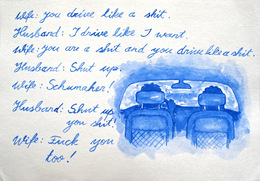 Wife: you drive like a shit.
Husband: I drive like I want.
Wife: you are a shit and you drive like a shit.
Husband: Shut up.
Wife: Schumaher!
Husband: Shut up
you shit!
Wife: Fuck you
too!